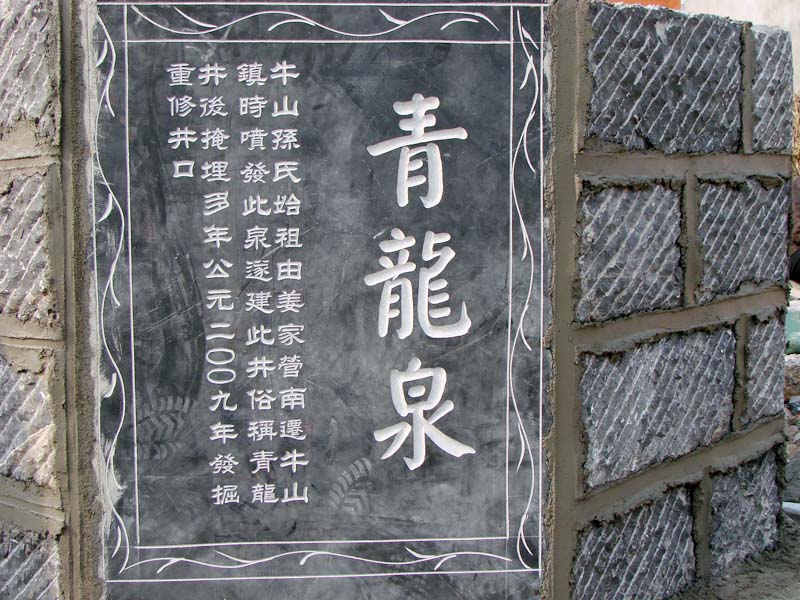 青龍泉
牛山孫氏始祖由姜家營南遷牛山
鎮時噴發此泉遂建此井俗稱青龍
井後掩埋多年公元二〇〇九年發掘
重修井口